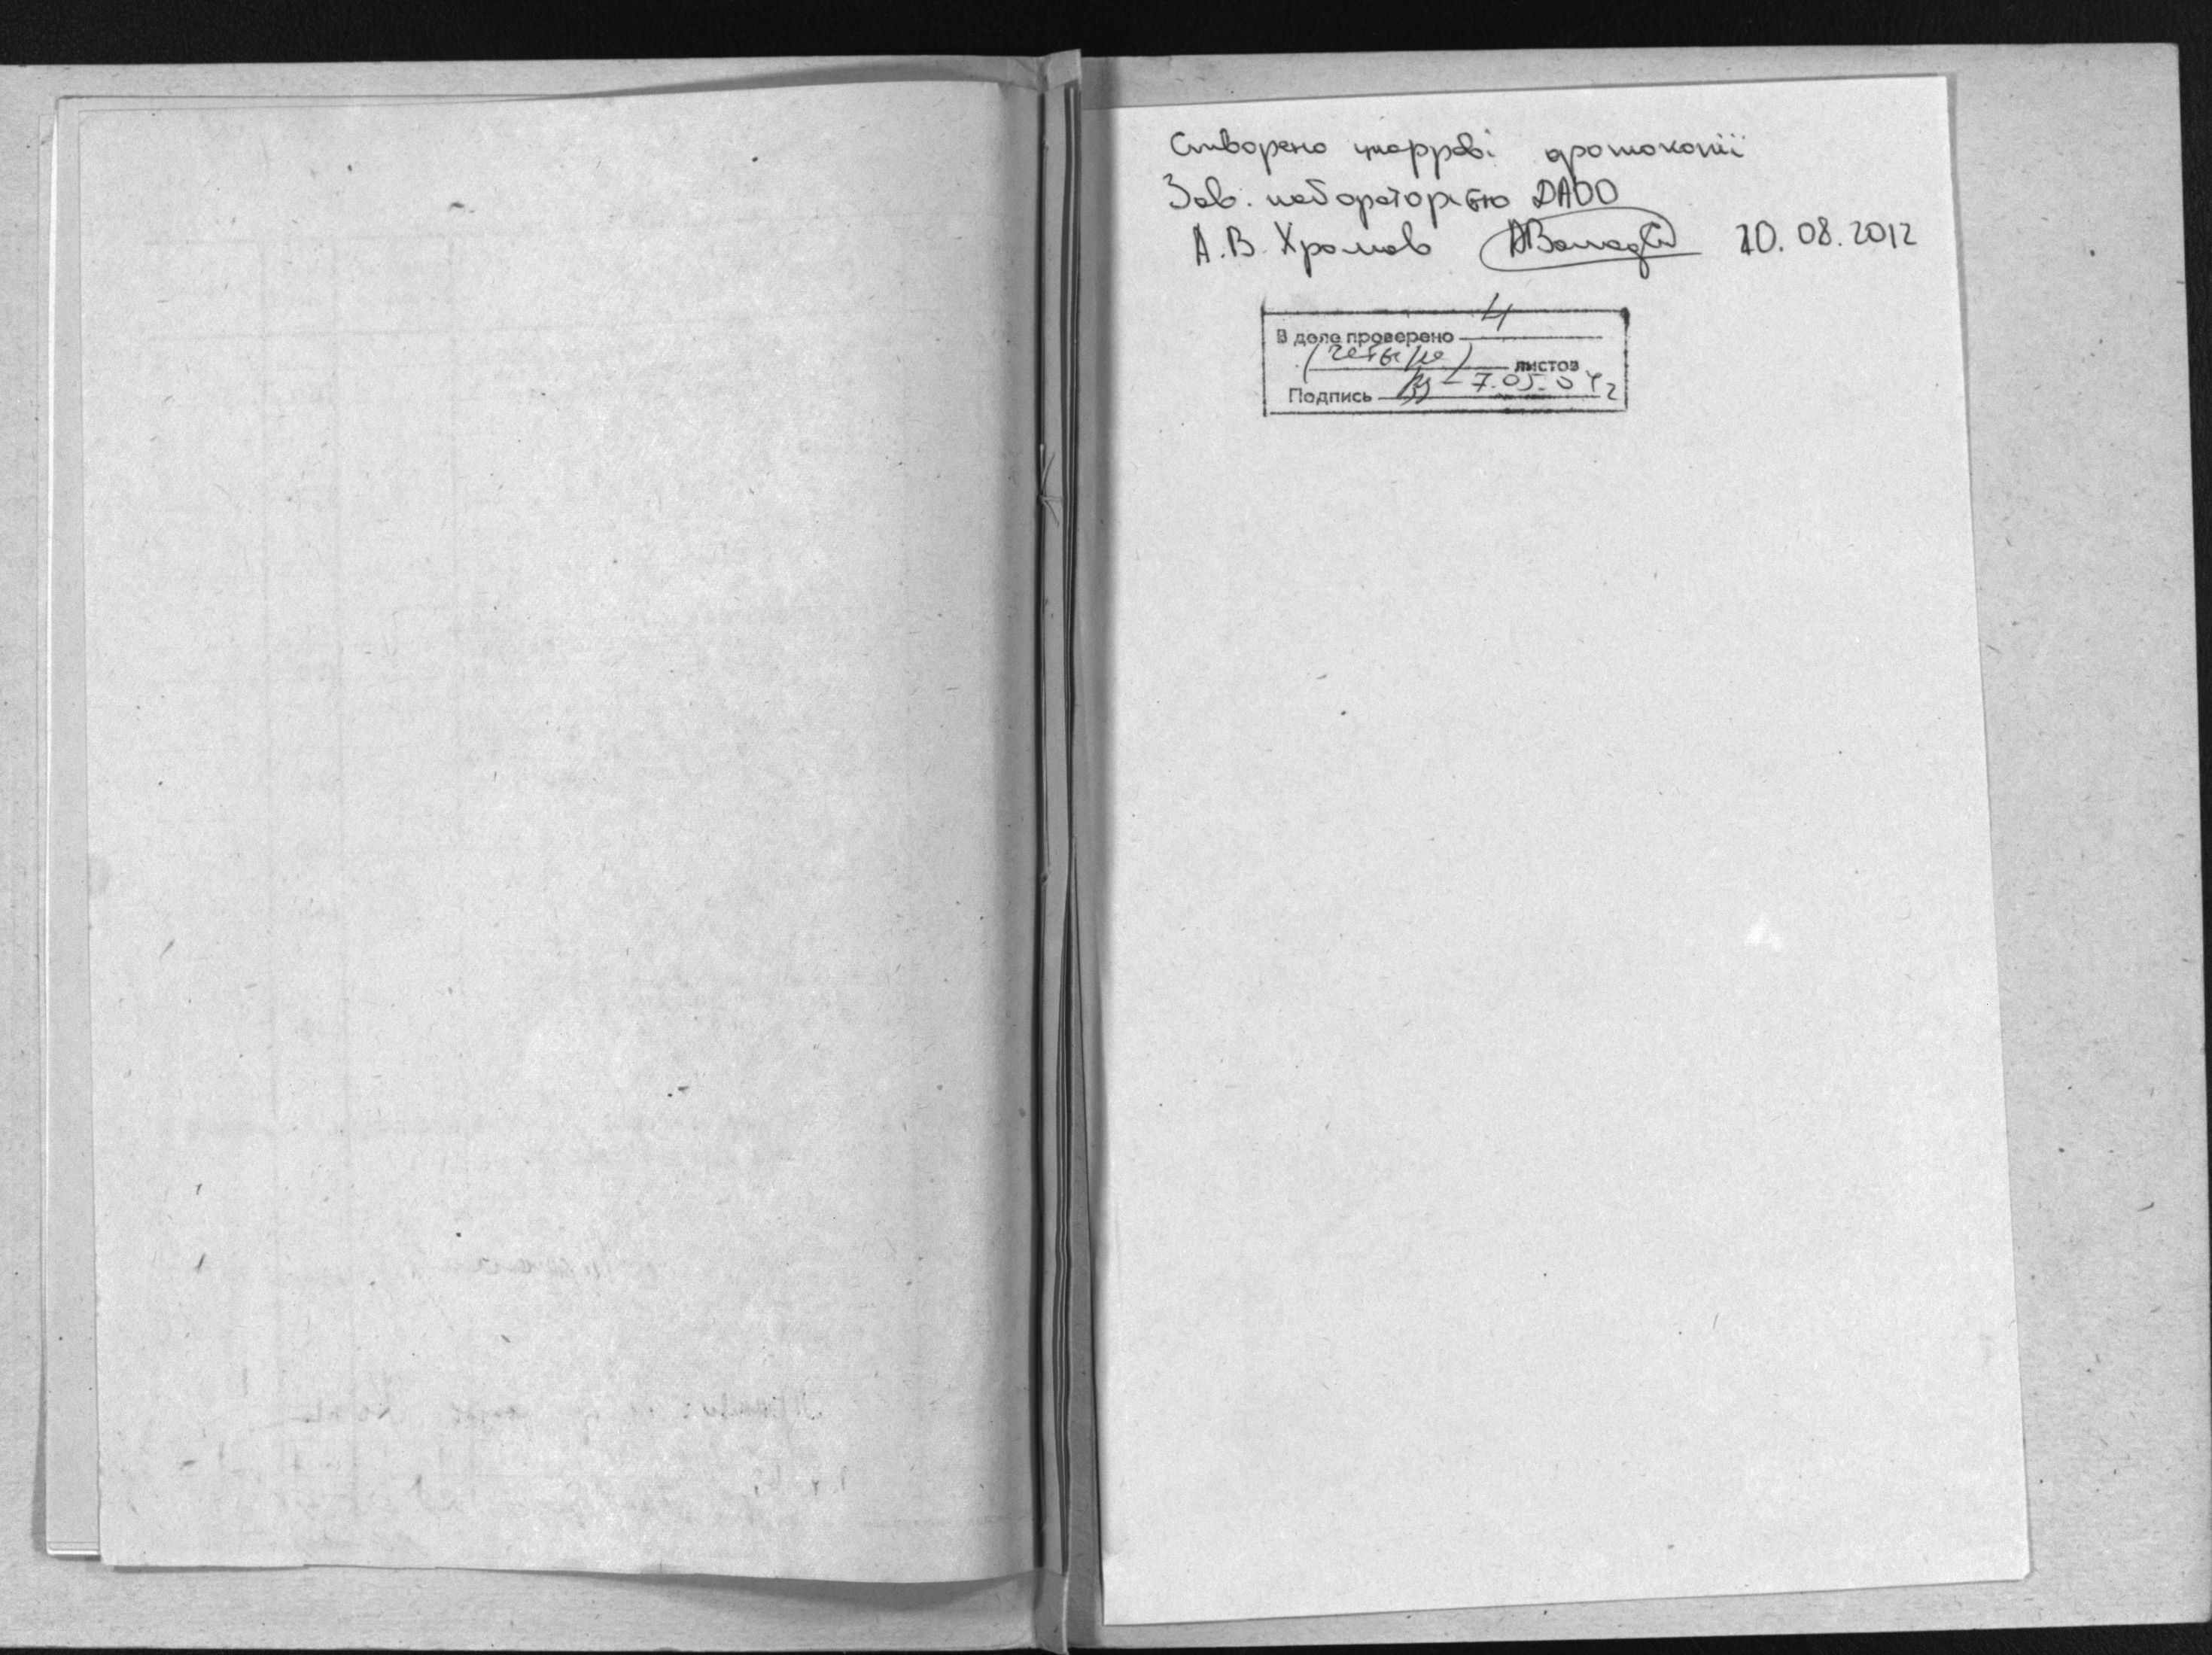 Створено цифрові фотокопії
Зав. лабораторією ДАОО
А.В. Хромов 10.08.2012
В деле проверено 4
(четыре) листов
Подпись 7.05.04г